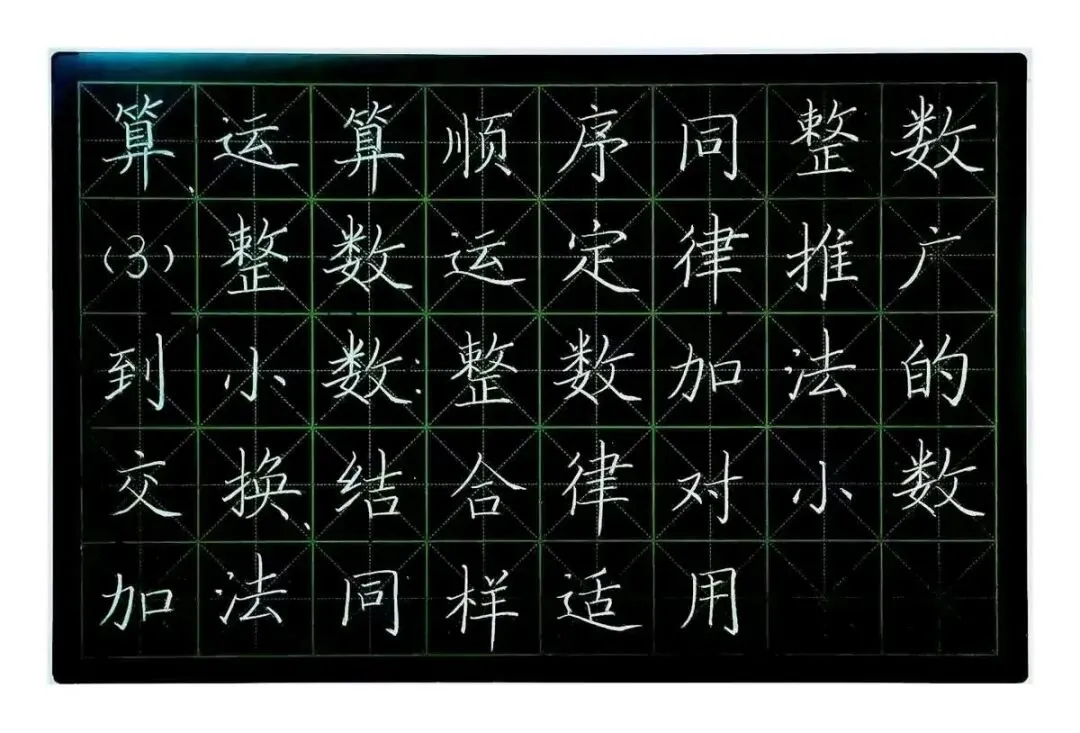 算、运算顺序同整数
(3)整数运定律推广
到小数:整数加法的
交换、结合律对小数
加法同样适用